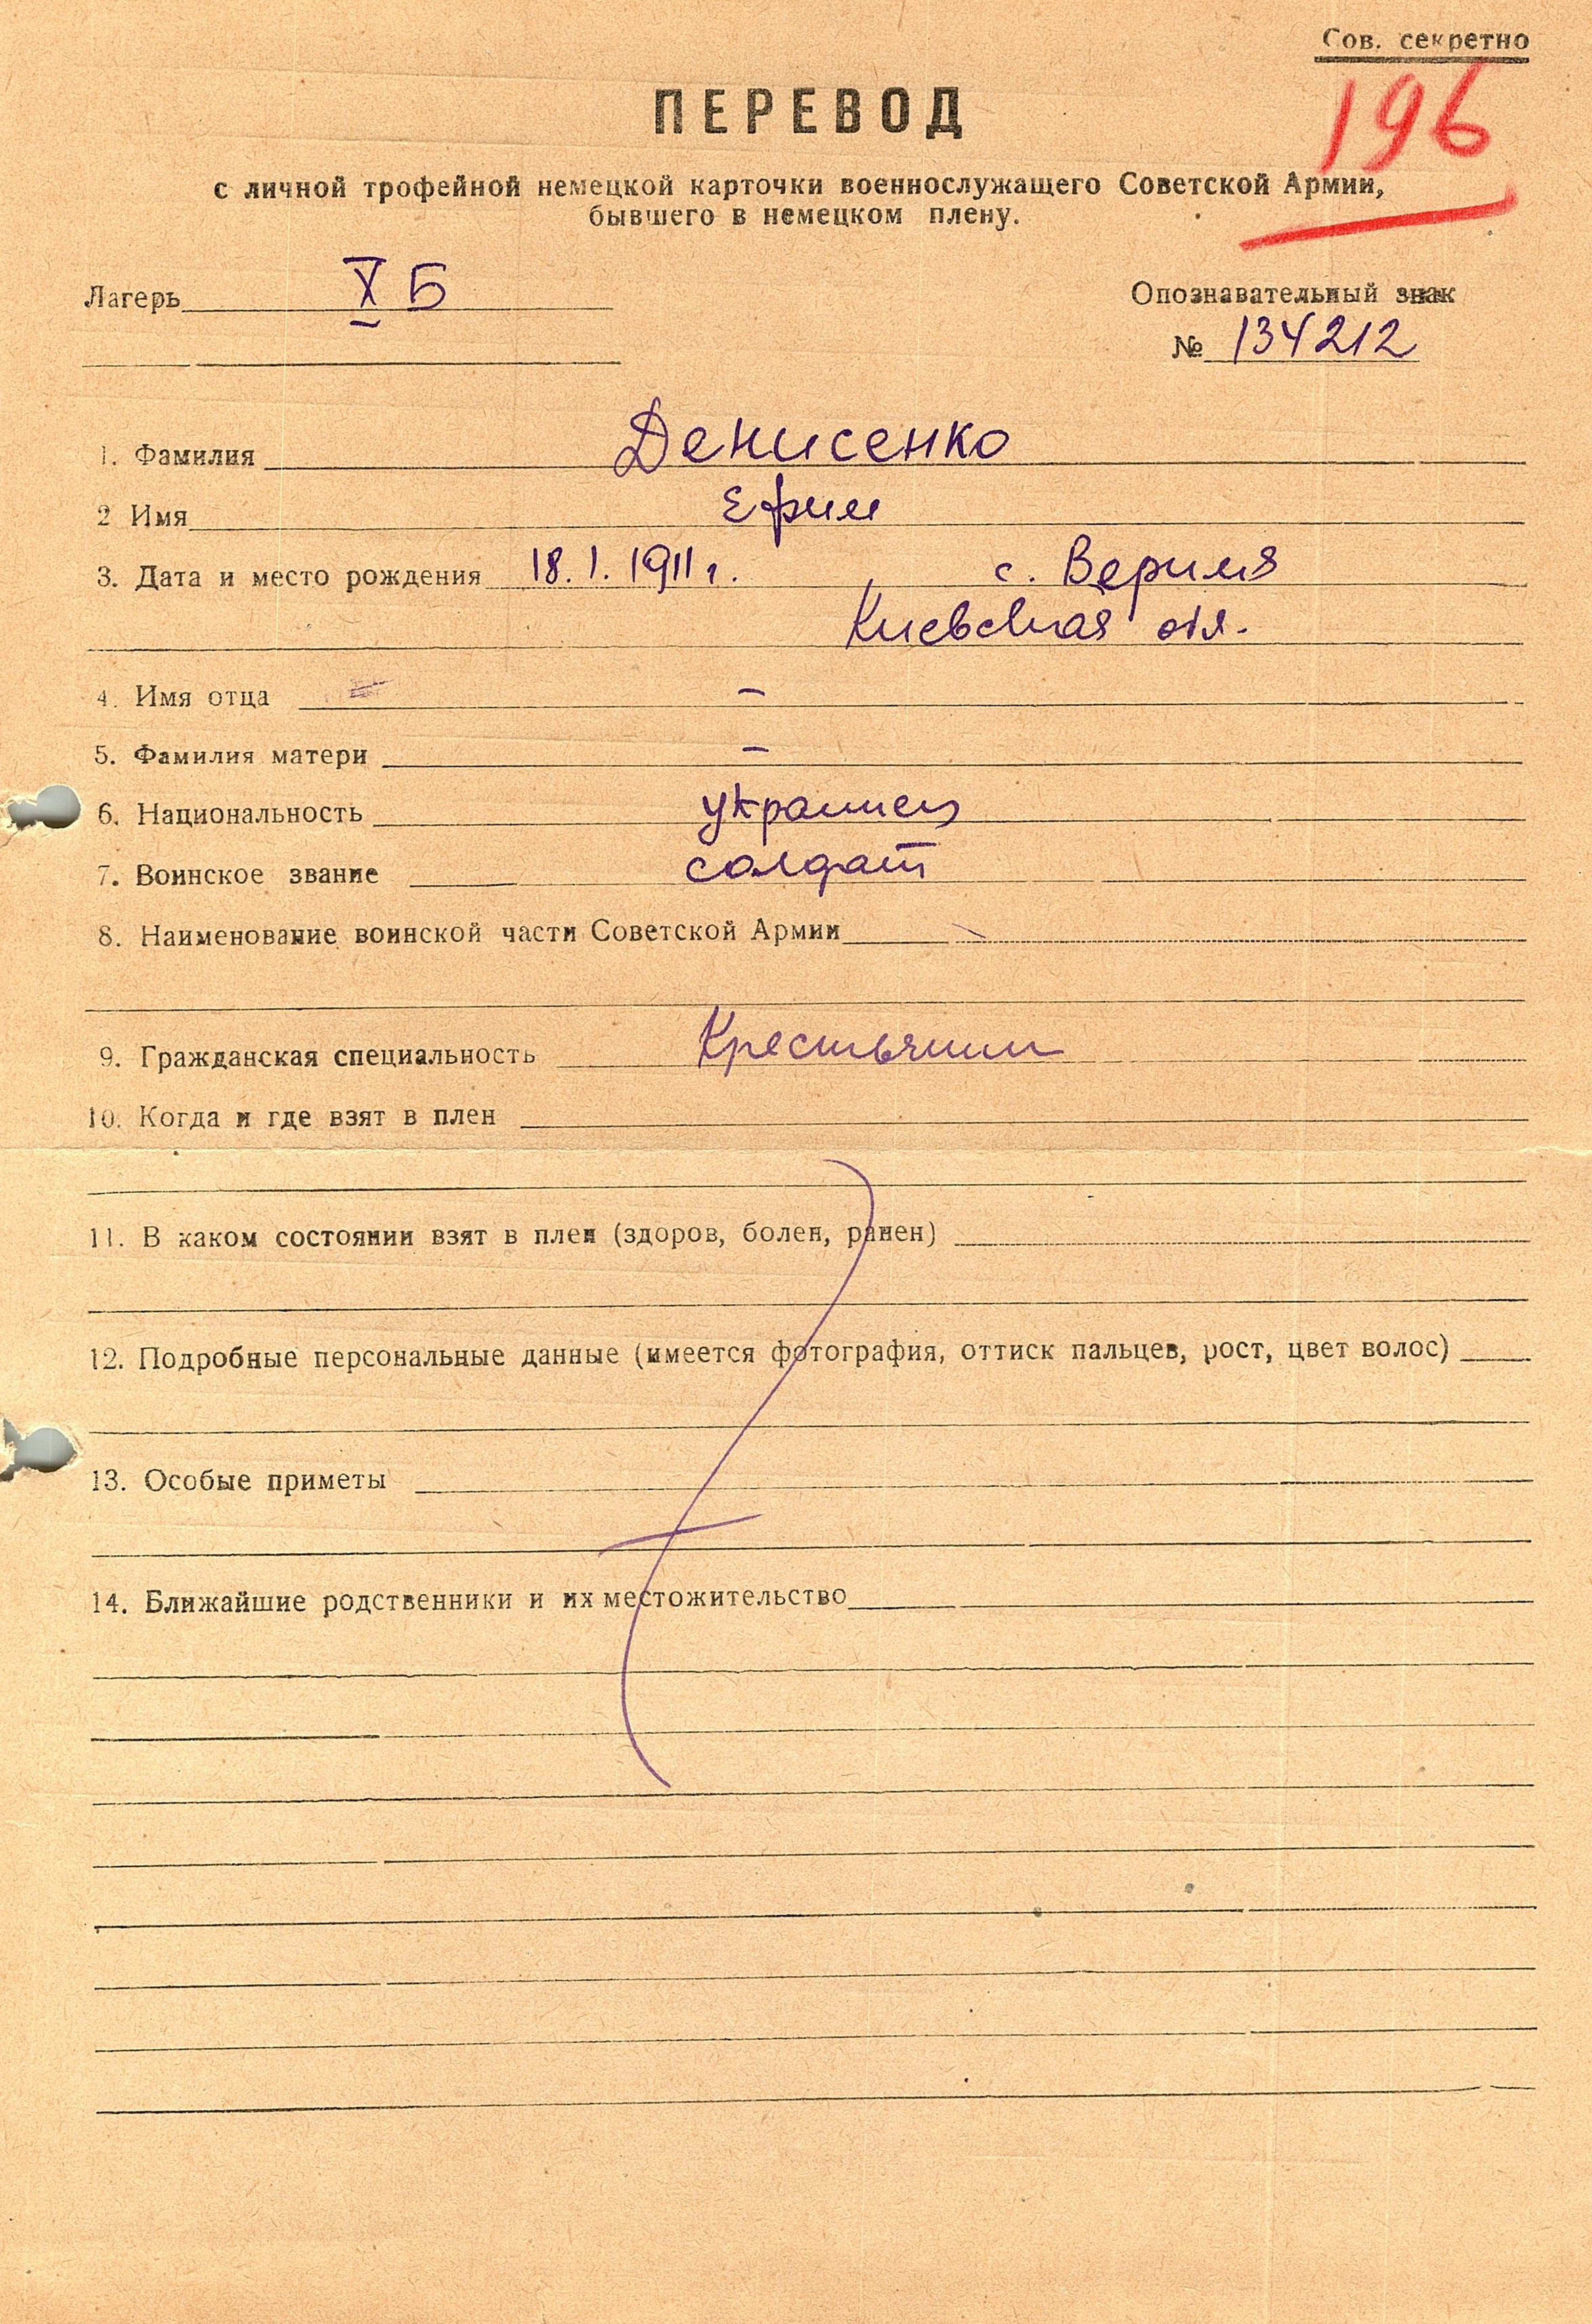 Сов. секретно
196
ПЕРЕВОД
с личной трофейной немецкой карточки военнослужащего Советской Армии,
бывшего в немецком плену.
Лагерь X Б
Опознавательный знак
№ 134212
1. Фамилия Денисенко
2 Имя Ефим
3. Дата и место рождения 18.1.1911 г. с. Веримя
Киевская обл.
4. Имя отца –
5. Фамилия матери –
6. Национальность украинец
7. Воинское звание солдат
8. Наименование воинской части Советской Армии
9. Гражданская специальность Крестьянин
10. Когда и где взят в плен
11. В каком состоянии взят в плен (здоров, болен, ранен)
12. Подробные персональные данные (имеется фотография, оттиск пальцев, рост, цвет волос)
13. Особые приметы
14. Ближайшие родственники и их местожительство